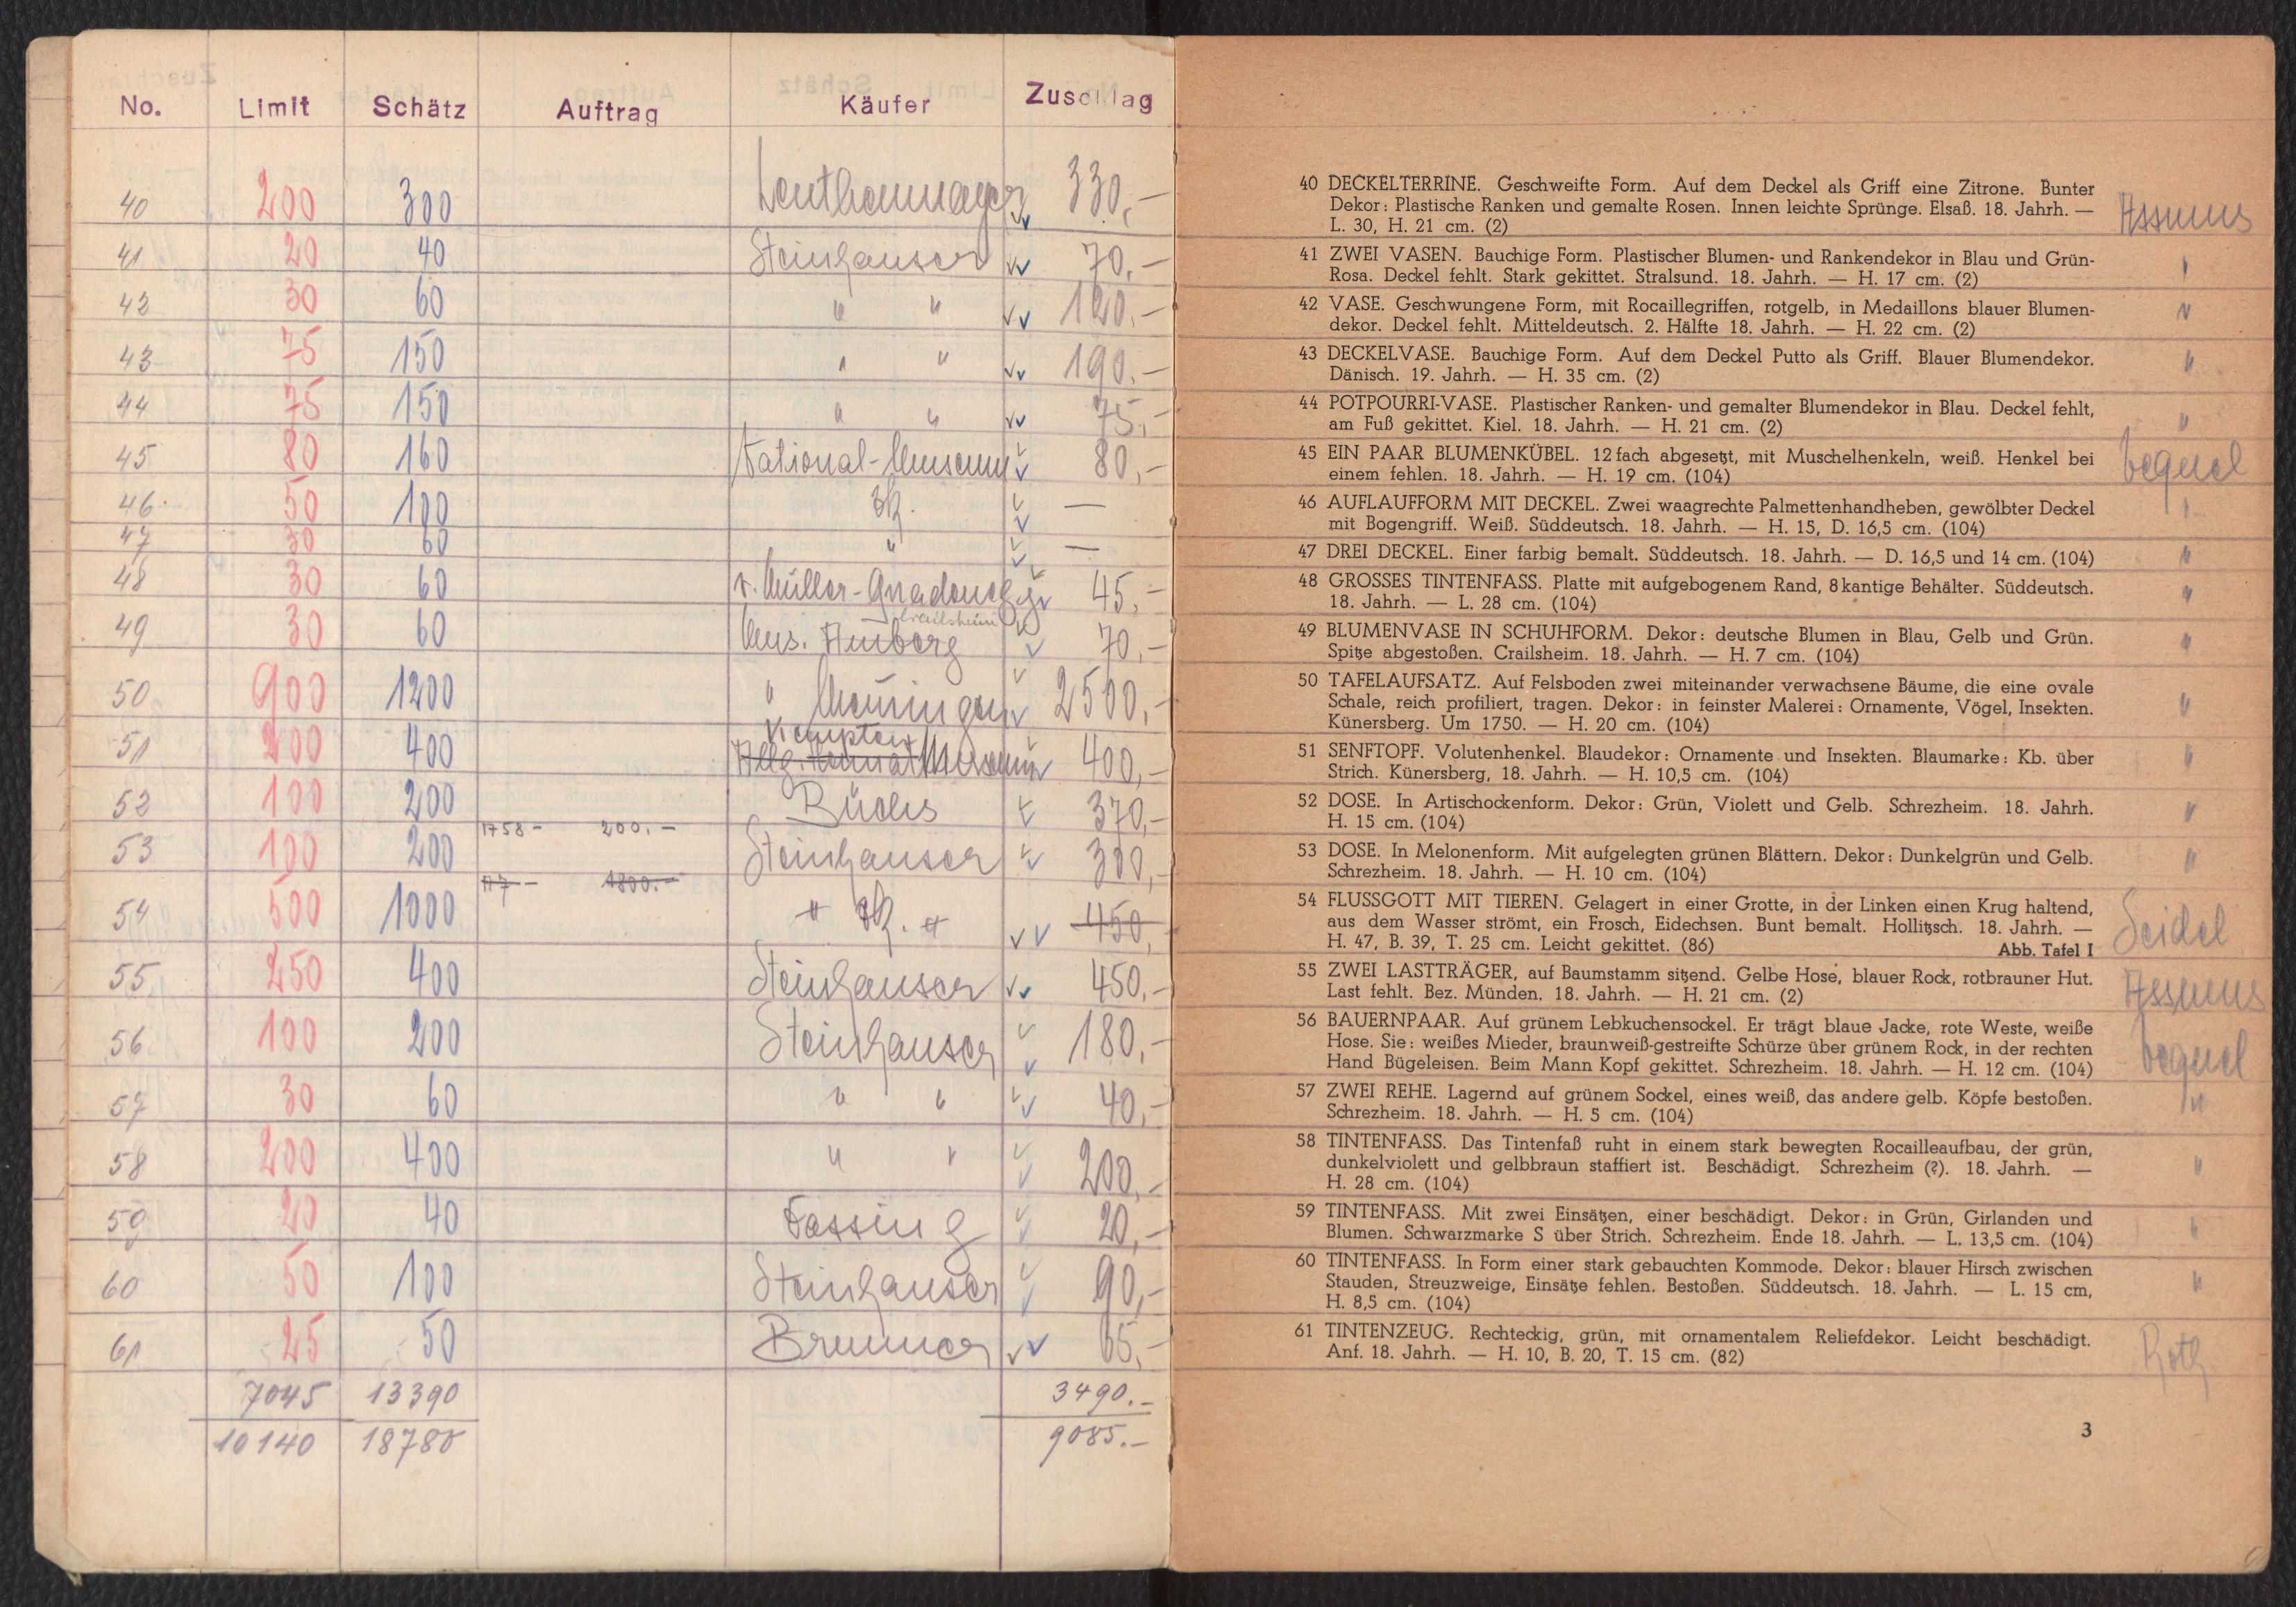 No. Limit Schätz Auftrag Käufer Zuschlag
40 200 300 330,-
41 20 40 Steinhauser 70,-
42 30 60 " " 120,-
43 75 150 " " 190,-
44 75 150 " " 75,-
45 80 160 National-Museum 80,-
46 50 100 —
47 30 60 " —
48 30 60 v. Müller- 45,-
Crailsheim
49 30 60 Mus. Amberg 70,-
50 900 1200 " 2500,-
Kempten
51 200 400 Museum 400,-
52 100 200 Büchs 370,-
1758- 200.-
53 100 200 Steinhauser 300,-
117- 1800.-
54 500 1000 " " 450,-
55 250 400 Steinhauser 450,-
56 100 200 Steinhauser 180,-
57 30 60 " " 40,-
58 200 400 " " 200,-
59 20 40 Fassing 20,-
60 50 100 Steinhauser 90,-
61 25 50 Brunner 65,-
7045 13390 3490.-
10140 18780 9085.-
40 DECKELTERRINE. Geschweifte Form. Auf dem Deckel als Griff eine Zitrone. Bunter
Dekor: Plastische Ranken und gemalte Rosen. Innen leichte Sprünge. Elsaß. 18. Jahrh. — Assmus
L. 30, H. 21 cm. (2)
41 ZWEI VASEN. Bauchige Form. Plastischer Blumen- und Rankendekor in Blau und Grün-
Rosa. Deckel fehlt. Stark gekittet. Stralsund. 18. Jahrh. — H. 17 cm. (2) "
42 VASE. Geschwungene Form, mit Rocaillegriffen, rotgelb, in Medaillons blauer Blumen- "
dekor. Deckel fehlt. Mitteldeutsch. 2. Hälfte 18. Jahrh. — H. 22 cm. (2)
43 DECKELVASE. Bauchige Form. Auf dem Deckel Putto als Griff. Blauer Blumendekor. "
Dänisch. 19. Jahrh. — H. 35 cm. (2)
44 POTPOURRI-VASE. Plastischer Ranken- und gemalter Blumendekor in Blau. Deckel fehlt,
am Fuß gekittet. Kiel. 18. Jahrh. — H. 21 cm. (2) "
45 EIN PAAR BLUMENKÜBEL. 12 fach abgesetzt, mit Muschelhenkeln, weiß. Henkel bei
einem fehlen. 18. Jahrh. — H. 19 cm. (104)
46 AUFLAUFFORM MIT DECKEL. Zwei waagrechte Palmettenhandheben, gewölbter Deckel "
mit Bogengriff. Weiß. Süddeutsch. 18. Jahrh. — H. 15, D. 16,5 cm. (104)
47 DREI DECKEL. Einer farbig bemalt. Süddeutsch. 18. Jahrh. — D. 16,5 und 14 cm. (104) "
48 GROSSES TINTENFASS. Platte mit aufgebogenem Rand, 8 kantige Behälter. Süddeutsch. "
18. Jahrh. — L. 28 cm. (104)
49 BLUMENVASE IN SCHUHFORM. Dekor: deutsche Blumen in Blau, Gelb und Grün. "
Spitze abgestoßen. Crailsheim. 18. Jahrh. — H. 7 cm. (104)
50 TAFELAUFSATZ. Auf Felsboden zwei miteinander verwachsene Bäume, die eine ovale
Schale, reich profiliert, tragen. Dekor: in feinster Malerei: Ornamente, Vögel, Insekten. "
Künersberg. Um 1750. — H. 20 cm. (104)
51 SENFTOPF. Volutenhenkel. Blaudekor: Ornamente und Insekten. Blaumarke: Kb. über "
Strich. Künersberg, 18. Jahrh. — H. 10,5 cm. (104)
52 DOSE. In Artischockenform. Dekor: Grün, Violett und Gelb. Schrezheim. 18. Jahrh. "
H. 15 cm. (104)
53 DOSE. In Melonenform. Mit aufgelegten grünen Blättern. Dekor: Dunkelgrün und Gelb. "
Schrezheim. 18. Jahrh. — H. 10 cm. (104)
54 FLUSSGOTT MIT TIEREN. Gelagert in einer Grotte, in der Linken einen Krug haltend,
aus dem Wasser strömt, ein Frosch, Eidechsen. Bunt bemalt. Hollitzsch. 18. Jahrh. — Seidel
H. 47, B. 39, T. 25 cm. Leicht gekittet. (86) Abb. Tafel I
55 ZWEI LASTTRÄGER, auf Baumstamm sitzend. Gelbe Hose, blauer Rock, rotbrauner Hut.
Last fehlt. Bez. Münden. 18. Jahrh. — H. 21 cm. (2) Assmus
56 BAUERNPAAR. Auf grünem Lebkuchensockel. Er trägt blaue Jacke, rote Weste, weiße
Hose. Sie: weißes Mieder, braunweiß-gestreifte Schürze über grünem Rock, in der rechten
Hand Bügeleisen. Beim Mann Kopf gekittet. Schrezheim. 18. Jahrh. — H. 12 cm. (104)
57 ZWEI REHE. Lagernd auf grünem Sockel, eines weiß, das andere gelb. Köpfe bestoßen. "
Schrezheim. 18. Jahrh. — H. 5 cm. (104)
58 TINTENFASS. Das Tintenfaß ruht in einem stark bewegten Rocailleaufbau, der grün,
dunkelviolett und gelbbraun staffiert ist. Beschädigt. Schrezheim (?). 18. Jahrh. — "
H. 28 cm. (104)
59 TINTENFASS. Mit zwei Einsätzen, einer beschädigt. Dekor: in Grün, Girlanden und "
Blumen. Schwarzmarke S über Strich. Schrezheim. Ende 18. Jahrh. — L. 13,5 cm. (104)
60 TINTENFASS. In Form einer stark gebauchten Kommode. Dekor: blauer Hirsch zwischen
Stauden, Streuzweige, Einsätze fehlen. Bestoßen. Süddeutsch. 18. Jahrh. — L. 15 cm, "
H. 8,5 cm. (104)
61 TINTENZEUG. Rechteckig, grün, mit ornamentalem Reliefdekor. Leicht beschädigt.
Anf. 18. Jahrh. — H. 10, B. 20, T. 15 cm. (82) Roth
3